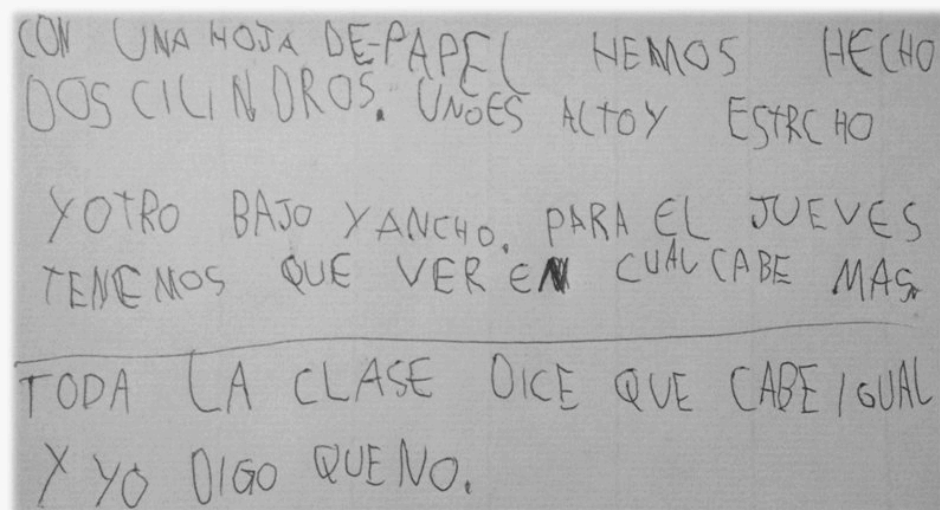 CON UNA HOJA DE-PAPEL HEMOS HECHO
DOS CILINDROS. UNO ES ALTO Y ESTRCHO
Y OTRO BAJO Y ANCHO. PARA EL JUEVES
TENEMOS QUE VER EN CUAL CABE MAS.
TODA LA CLASE DICE QUE CABE IGUAL
Y YO DIGO QUE NO.